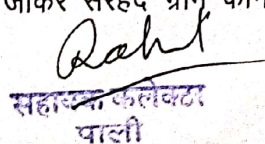 जाकर सरहद ग्राम
Rahul
सहायक कलेक्टर
पाली